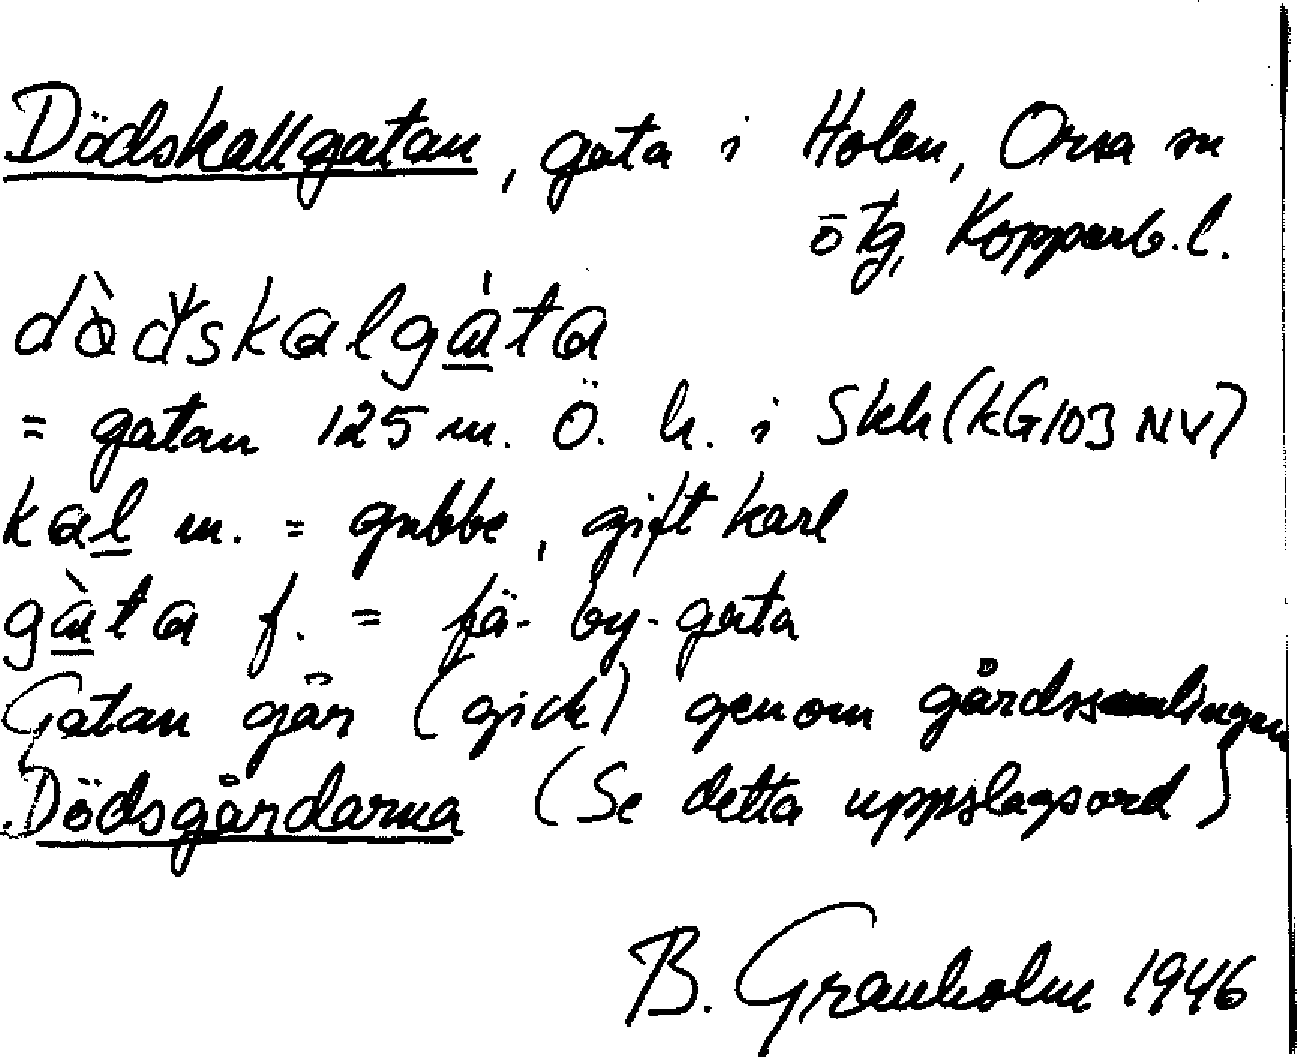 Dödskallgatan, gata i Holen, Orsa sn
ö tg, Kopparb. l.
= gatan 125 m. Ö. h. i Skh (KG103 NV)
kal m. = gubbe, gift karl
gàta f. = fä- by-gata
Gatan går (gick) genom gårdssamlingen
Dödsgårdarna (Se detta uppslagsord)
B. Granholm 1946